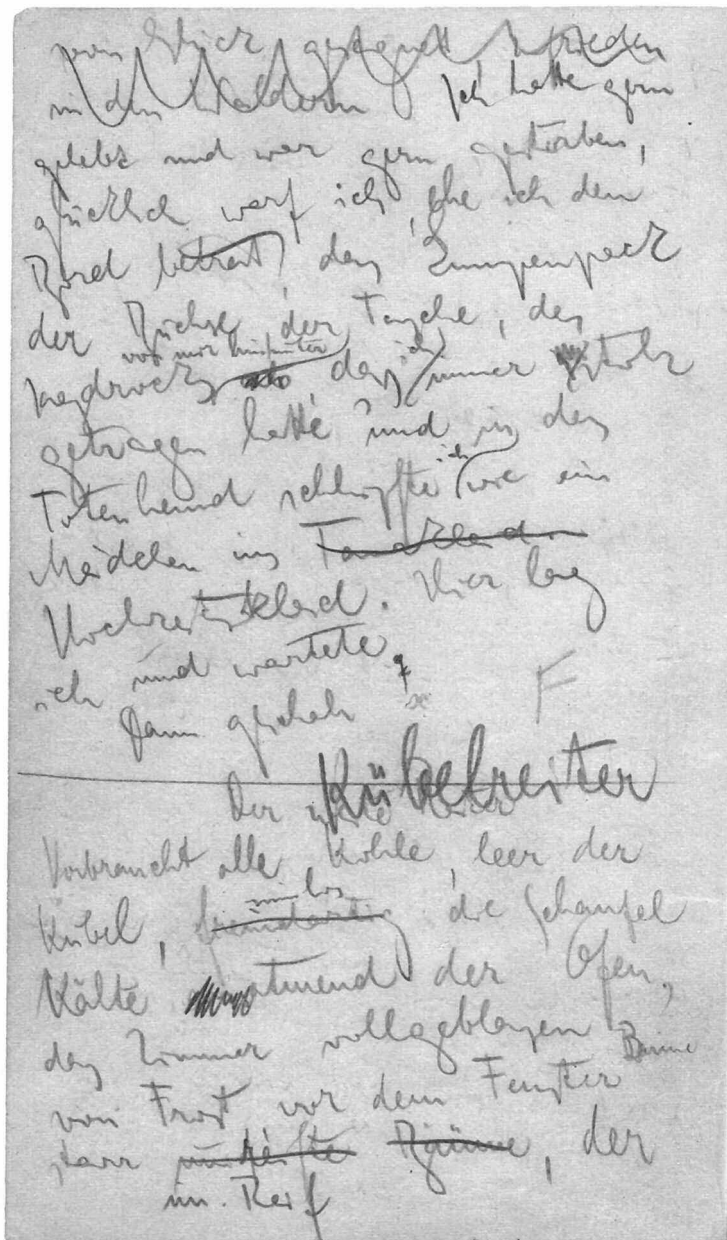 in den Wäldern Ich hatte gern
gelebt und war gern gestorben,
glücklich warf ich, ehe ich den
Bord betrat, das Lumpenpack
der Büchse, der Tasche, des
vor mir hinunter ich
Jagdrocks, das immer stolz
getragen hatte und in das
ich
Totenhemd schlüpfte wie ein
Mädchen ins
Hochzeitskleid. Hier lag
ich und wartete.
Dann geschah
F
Kübelreiter
Der Reiter
Verbraucht alle Kohle, leer der
sinnlos
Kübel, die Schaufel
Kälte atmend der Ofen,
das Zimmer vollgeblasen Bäume
von Frost vor dem Fenster
starr Bäume, der
im Reif